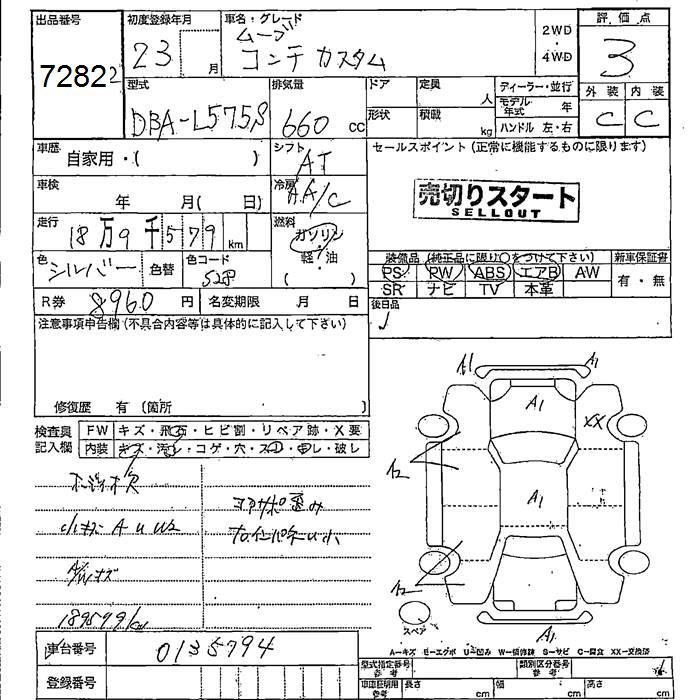 出品番号 初度登録年月 車名・グレード 評価点
72822 23 月 ムーブ コンテ カスタム 2WD・4WD 3
型式 排気量 ドア 定員 人 ディーラー・並行 外装 内装
DBA-L575S 660 cc 形状 積載 kg モデル年式 年 C C
ハンドル 左・右
車歴 自家用・( ) シフト AT セールスポイント(正常に機能するものに限ります)
車検 年 月( 日) 冷房 AA/C 売切りスタート
SELLOUT
走行 18万9千579 km 燃料 ガソリン
軽・油
( )
色 シルバー 色替 色コード S28 装備品(純正品に限り○をつけて下さい) 新車保証書
PS PW ABS エアB AW 有・無
R券 8960円 名変期限 月 日 SR ナビ TV 本革
後日品
注意事項申告欄(不具合内容等は具体的に記入して下さい)
修復歴 有(箇所 )
検査員記入欄 FW キズ・飛石・ヒビ割・リペア跡・X要
内装 キズ・汚レ・コゲ・穴・スレ・電レ・破レ
小キズ A U W2
コアサポ歪み
189579km
A1 A1
A1 XX
A2
A1
A2
スペア A1
A-キズ E-エクボ U-凹み W-補修跡 S-サビ C-腐食 XX-交換済
車台番号 0135794
型式指定番号 参考 類別区分番号 参考
登録番号
車車証明用 参考 長さ cm 幅 cm 高さ cm